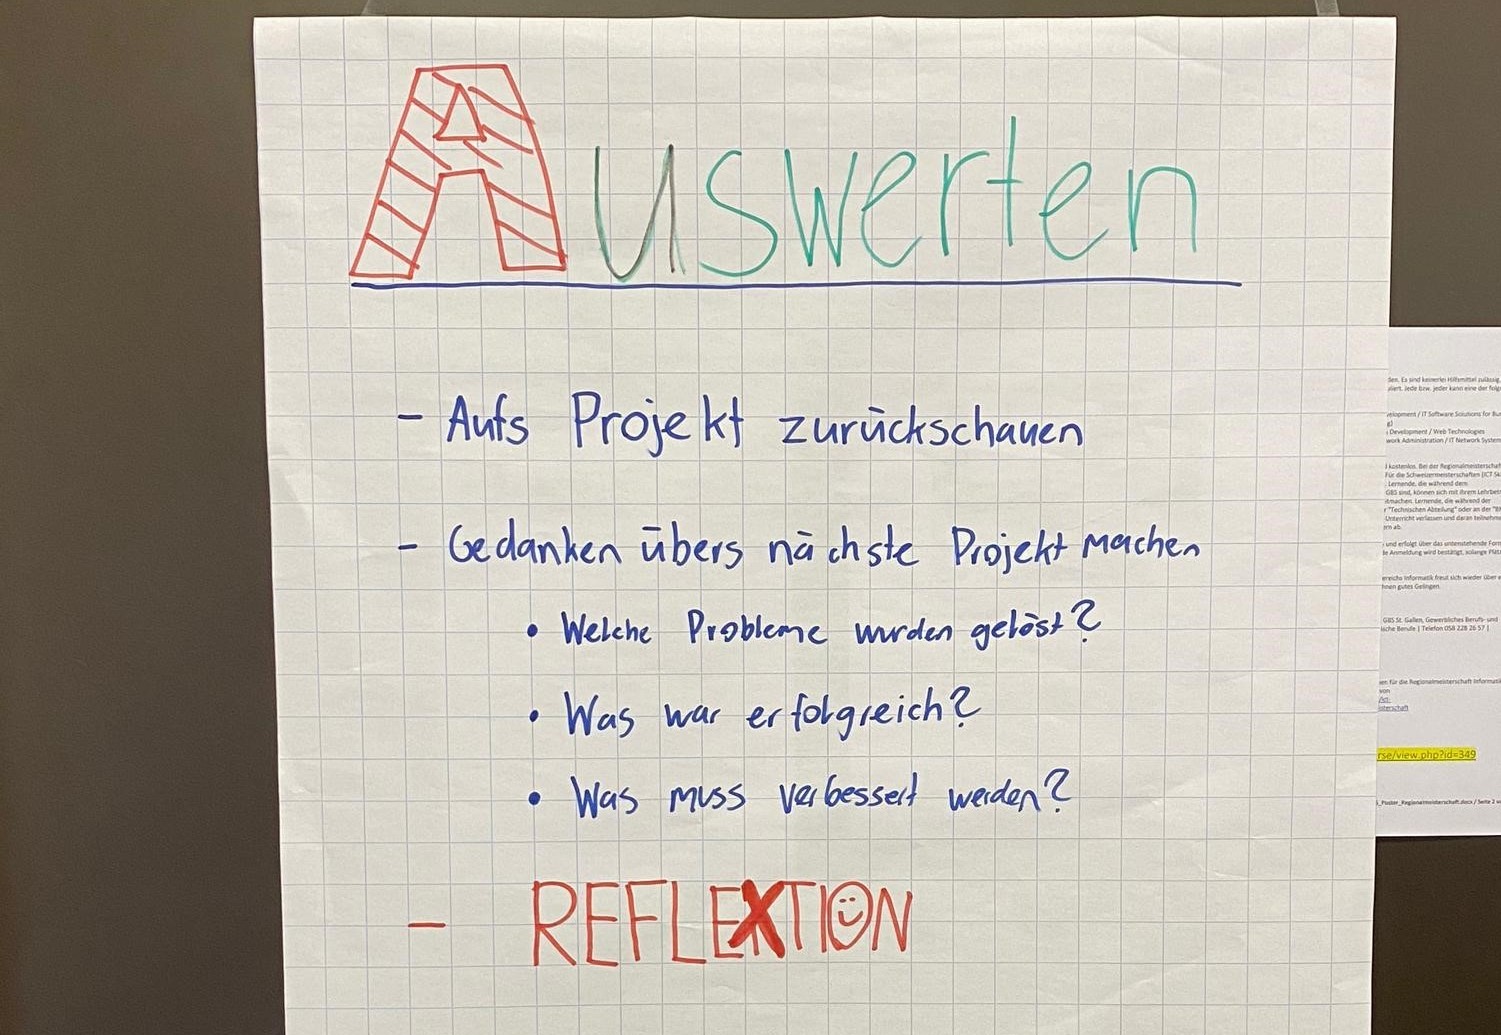 Auswerten
- Aufs Projekt zurückschauen
- Gedanken übers nächste Projekt machen
• Welche Probleme wurden gelöst?
• Was war erfolgreich?
• Was muss verbessert werden?
- REFLEXTION
den. Es sind keinerlei Hilfsmittel zulässig,
liert. Jede bzw. jeder kann eine der folg
velopment / IT Software Solutions for Bus
g)
Development / Web Technologies
work Administration / IT Network System
kostenlos. Bei der Regionalmeisterschaf
Für die Schweizermeisterschaften (ICT Sk
Lernende, die während dem
GBS sind, können sich mit ihrem Lehrbet
itmachen. Lernende, die während der
r "Technischen Abteilung" oder an der "B
Unterricht verlassen und daran teilnehme
ern ab.
und erfolgt über das untenstehende Form
le Anmeldung wird bestätigt, solange Plät
ereichs Informatik freut sich wieder über e
hnen gutes Gelingen.
GBS St. Gallen, Gewerbliches Berufs- und
ische Berufe | Telefon 058 228 26 57 |
en für die Regionalmeisterschaft Informati
von
isterschaft
rse/view.php?id=349
_Poster_Regionalmeisterschaft.docx / Seite 2 v